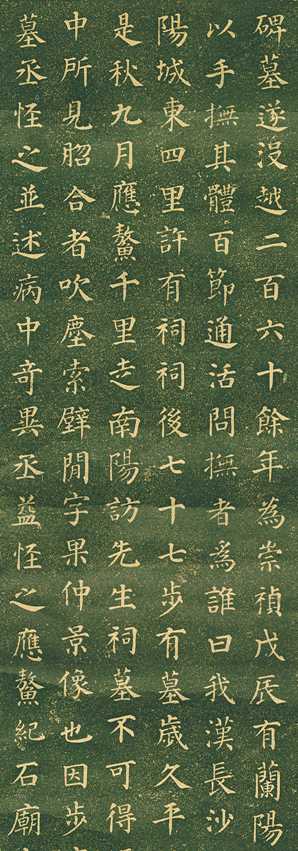 碑墓遂沒越二百六十餘年為崇禎戊辰有蘭陽
以手撫其體百節通活問撫者為誰曰我漢長沙
陽城東四里許有祠祠後七十七步有墓歲久平
是秋九月應鰲千里走南陽訪先生祠墓不可得
中所見合者吹塵索壁閒字果仲景像也因步
墓丞怪之並述病中奇異丞益怪之應鰲紀石廟